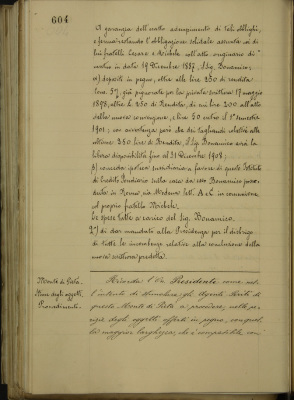 604
A garanzia dell'esatto adempimento di tali obblighi,
e ferma restando l'obbligazione solidale assunta dai di
lui fratelli Cesare e Michele coll'atto originario di
mutuo in data 19 Dicembre 1887, il Sig. Bonamico:
a) depositi in pegno, oltre alle lire 250 di rendita
cons. 5%, già pignorate per la privata scrittura 17 maggio
1893, altre L. 250 di Rendita, di cui lire 200 all'atto
della nuova convenzione, e lire 50 entro il 1° semestre
1901; con avvertenza però che dei tagliandi relativi alle
ultime £ 250 lire di Rendita, il Sig. Bonamico avrà la
libera disponibilità fino al 31 Dicembre 1908;
b) conceda ipoteca a favore di questo Istituto
di Credito Fondiario sulla casa da esso Bonamico posse-
duta in Roma, via Modena lett. A e C in comunione
col proprio fratello Michele.
Le spese tutte a carico del Sig. Bonamico.
2°) di dare mandato alla Presidenza per il disbrigo
di tutte le incombenze relative alla conclusione della
nuova scrittura predetta.
Monte di Pietà.
Stima degli oggetti.
Provvedimenti.
Ricorda l'On. Presidente, come nel-
l'intento di stimolare gli Agenti Periti di
questo Monte di Pietà a procedere, nella pe-
rizia degli oggetti offerti in pegno, con quel-
la maggior larghezza, che è compatibile con